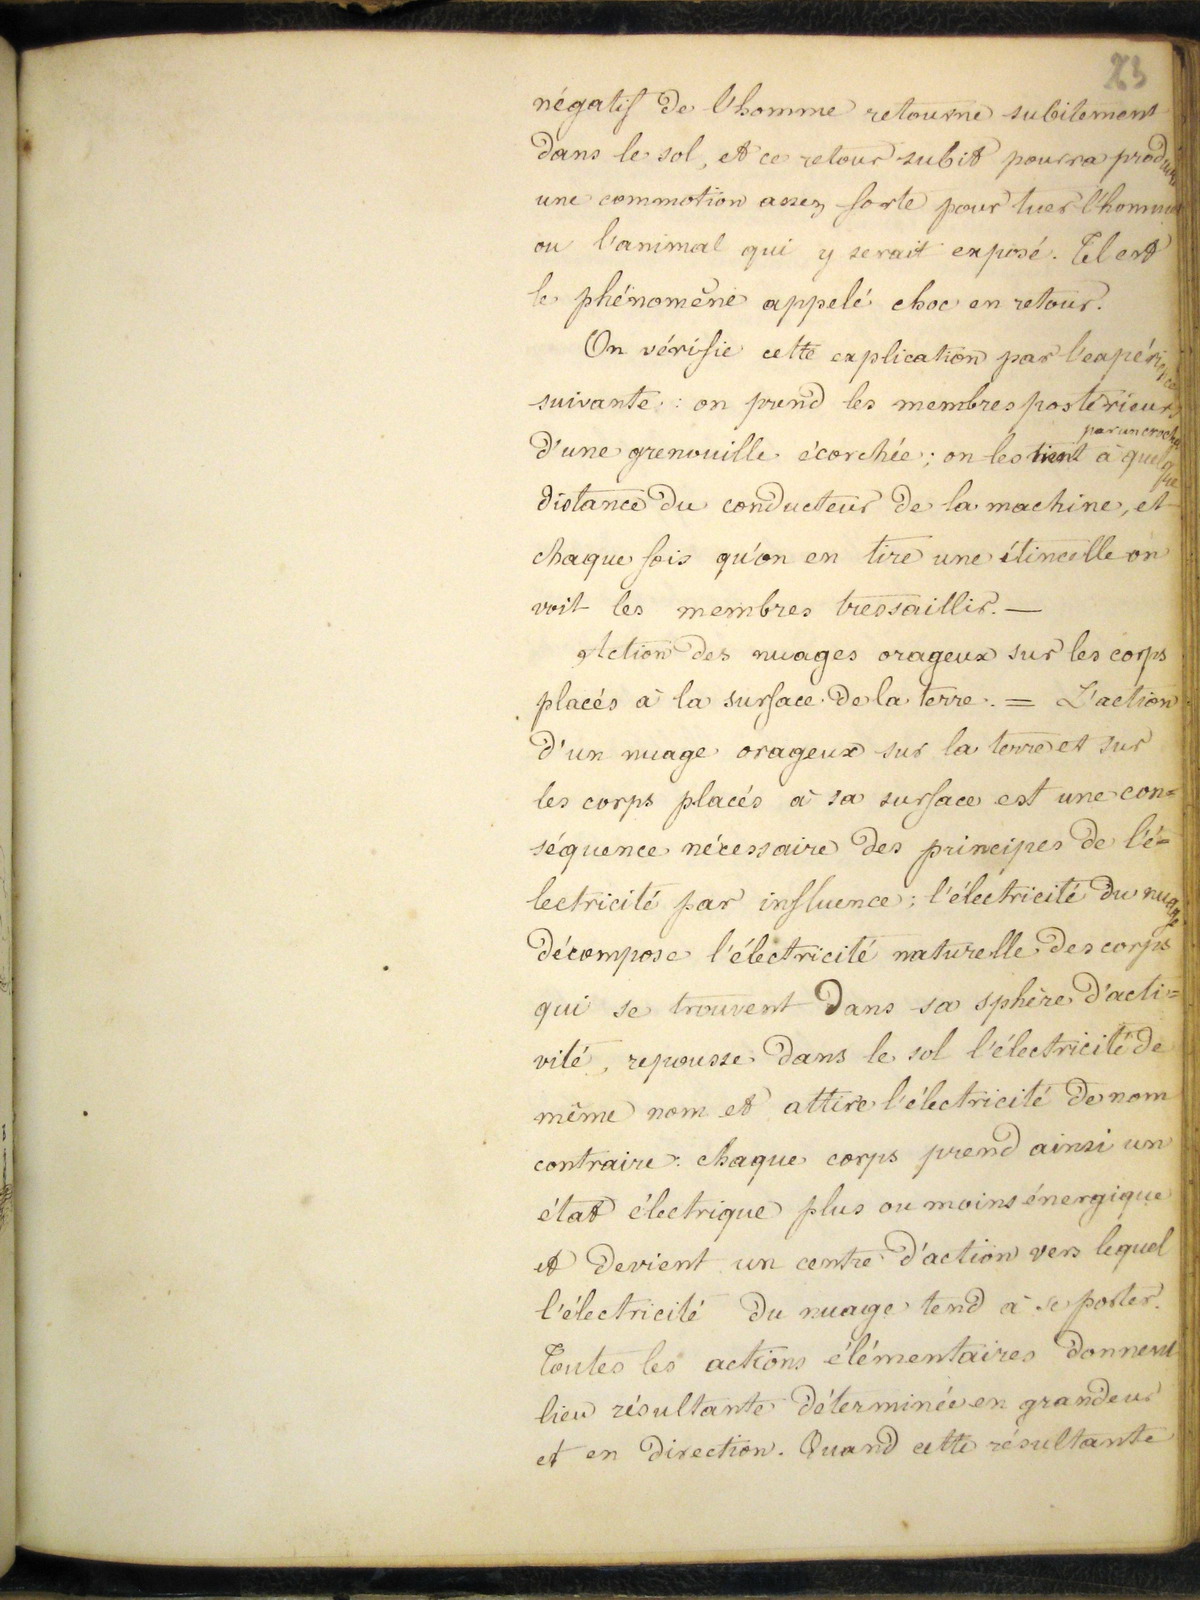 23
négatif de l'homme retourne subitement
dans le sol, et ce retour subit pourra produire
une commotion assez forte pour tuer l'homme
ou l'animal qui y serait exposé. Tel est
le phénomène appelé choc en retour.
On vérifie cette explication par l'expérience
suivante : on prend les membres postérieurs
par un crochet
d'une grenouille écorchée ; on les tient à quelque
distance du conducteur de la machine, et
chaque fois qu'on en tire une étincelle on
voit les membres tressaillir. —
Action des nuages orageux sur les corps
placés à la surface de la terre. = L'action
d'un nuage orageux sur la terre et sur
les corps placés à sa surface est une con=
séquence nécessaire des principes de l'é=
lectricité par influence ; l'électricité du nuage
décompose l'électricité naturelle des corps
qui se trouvent dans sa sphère d'acti=
vité, repousse dans le sol l'électricité de
même nom et attire l'électricité de nom
contraire : chaque corps prend ainsi un
état électrique plus ou moins énergique
et devient un centre d'action vers lequel
l'électricité du nuage tend à se porter.
Toutes les actions élémentaires donnent
lieu résultante déterminée en grandeur
et en direction. Quand cette résultante